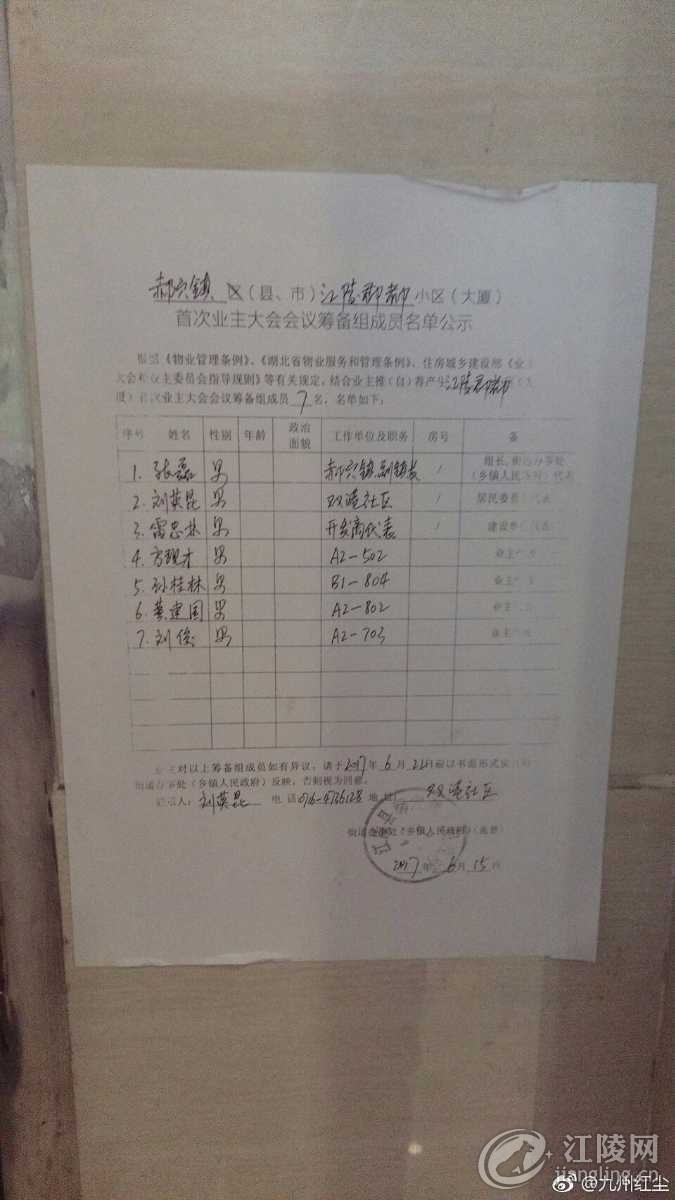 郝穴镇 区(县、市)江陵郡都小区(大厦)
首次业主大会会议筹备组成员名单公示
根据《物业管理条例》、《湖北省物业服务和管理条例》、住房城乡建设部《业主
大会和业主委员会指导规则》等有关规定,结合业主推(自)荐产生江陵郡都
首次业主大会会议筹备组成员 7 名,名单如下:
序号 姓名 性别 年龄 政治面貌 工作单位及职务 房号 备
1. 张磊 男 郝穴镇副镇长 / 组长,街道办事处(乡镇人民政府)代表
2. 刘英昆 男 双港社区 / 居民委员 代表
3. 雷忠林 男 开发商代表 / 建设单位代表
4. 方 才 男 A2-502 业主
5. 孙桂林 男 B1-804 业主
6. 黄建国 男 A2-802 业主
7. 刘俊 男 A2-703 业主
业主对以上筹备组成员如有异议,请于2017年6月22日前以书面形式
街道办事处(乡镇人民政府)反映,否则视为同意。
联系人:刘英昆 电话 地址: 双港社区
街道办事处(乡镇人民政府)(盖章)
2017年6月15日
江陵网
jiangling.cn
@九州红尘